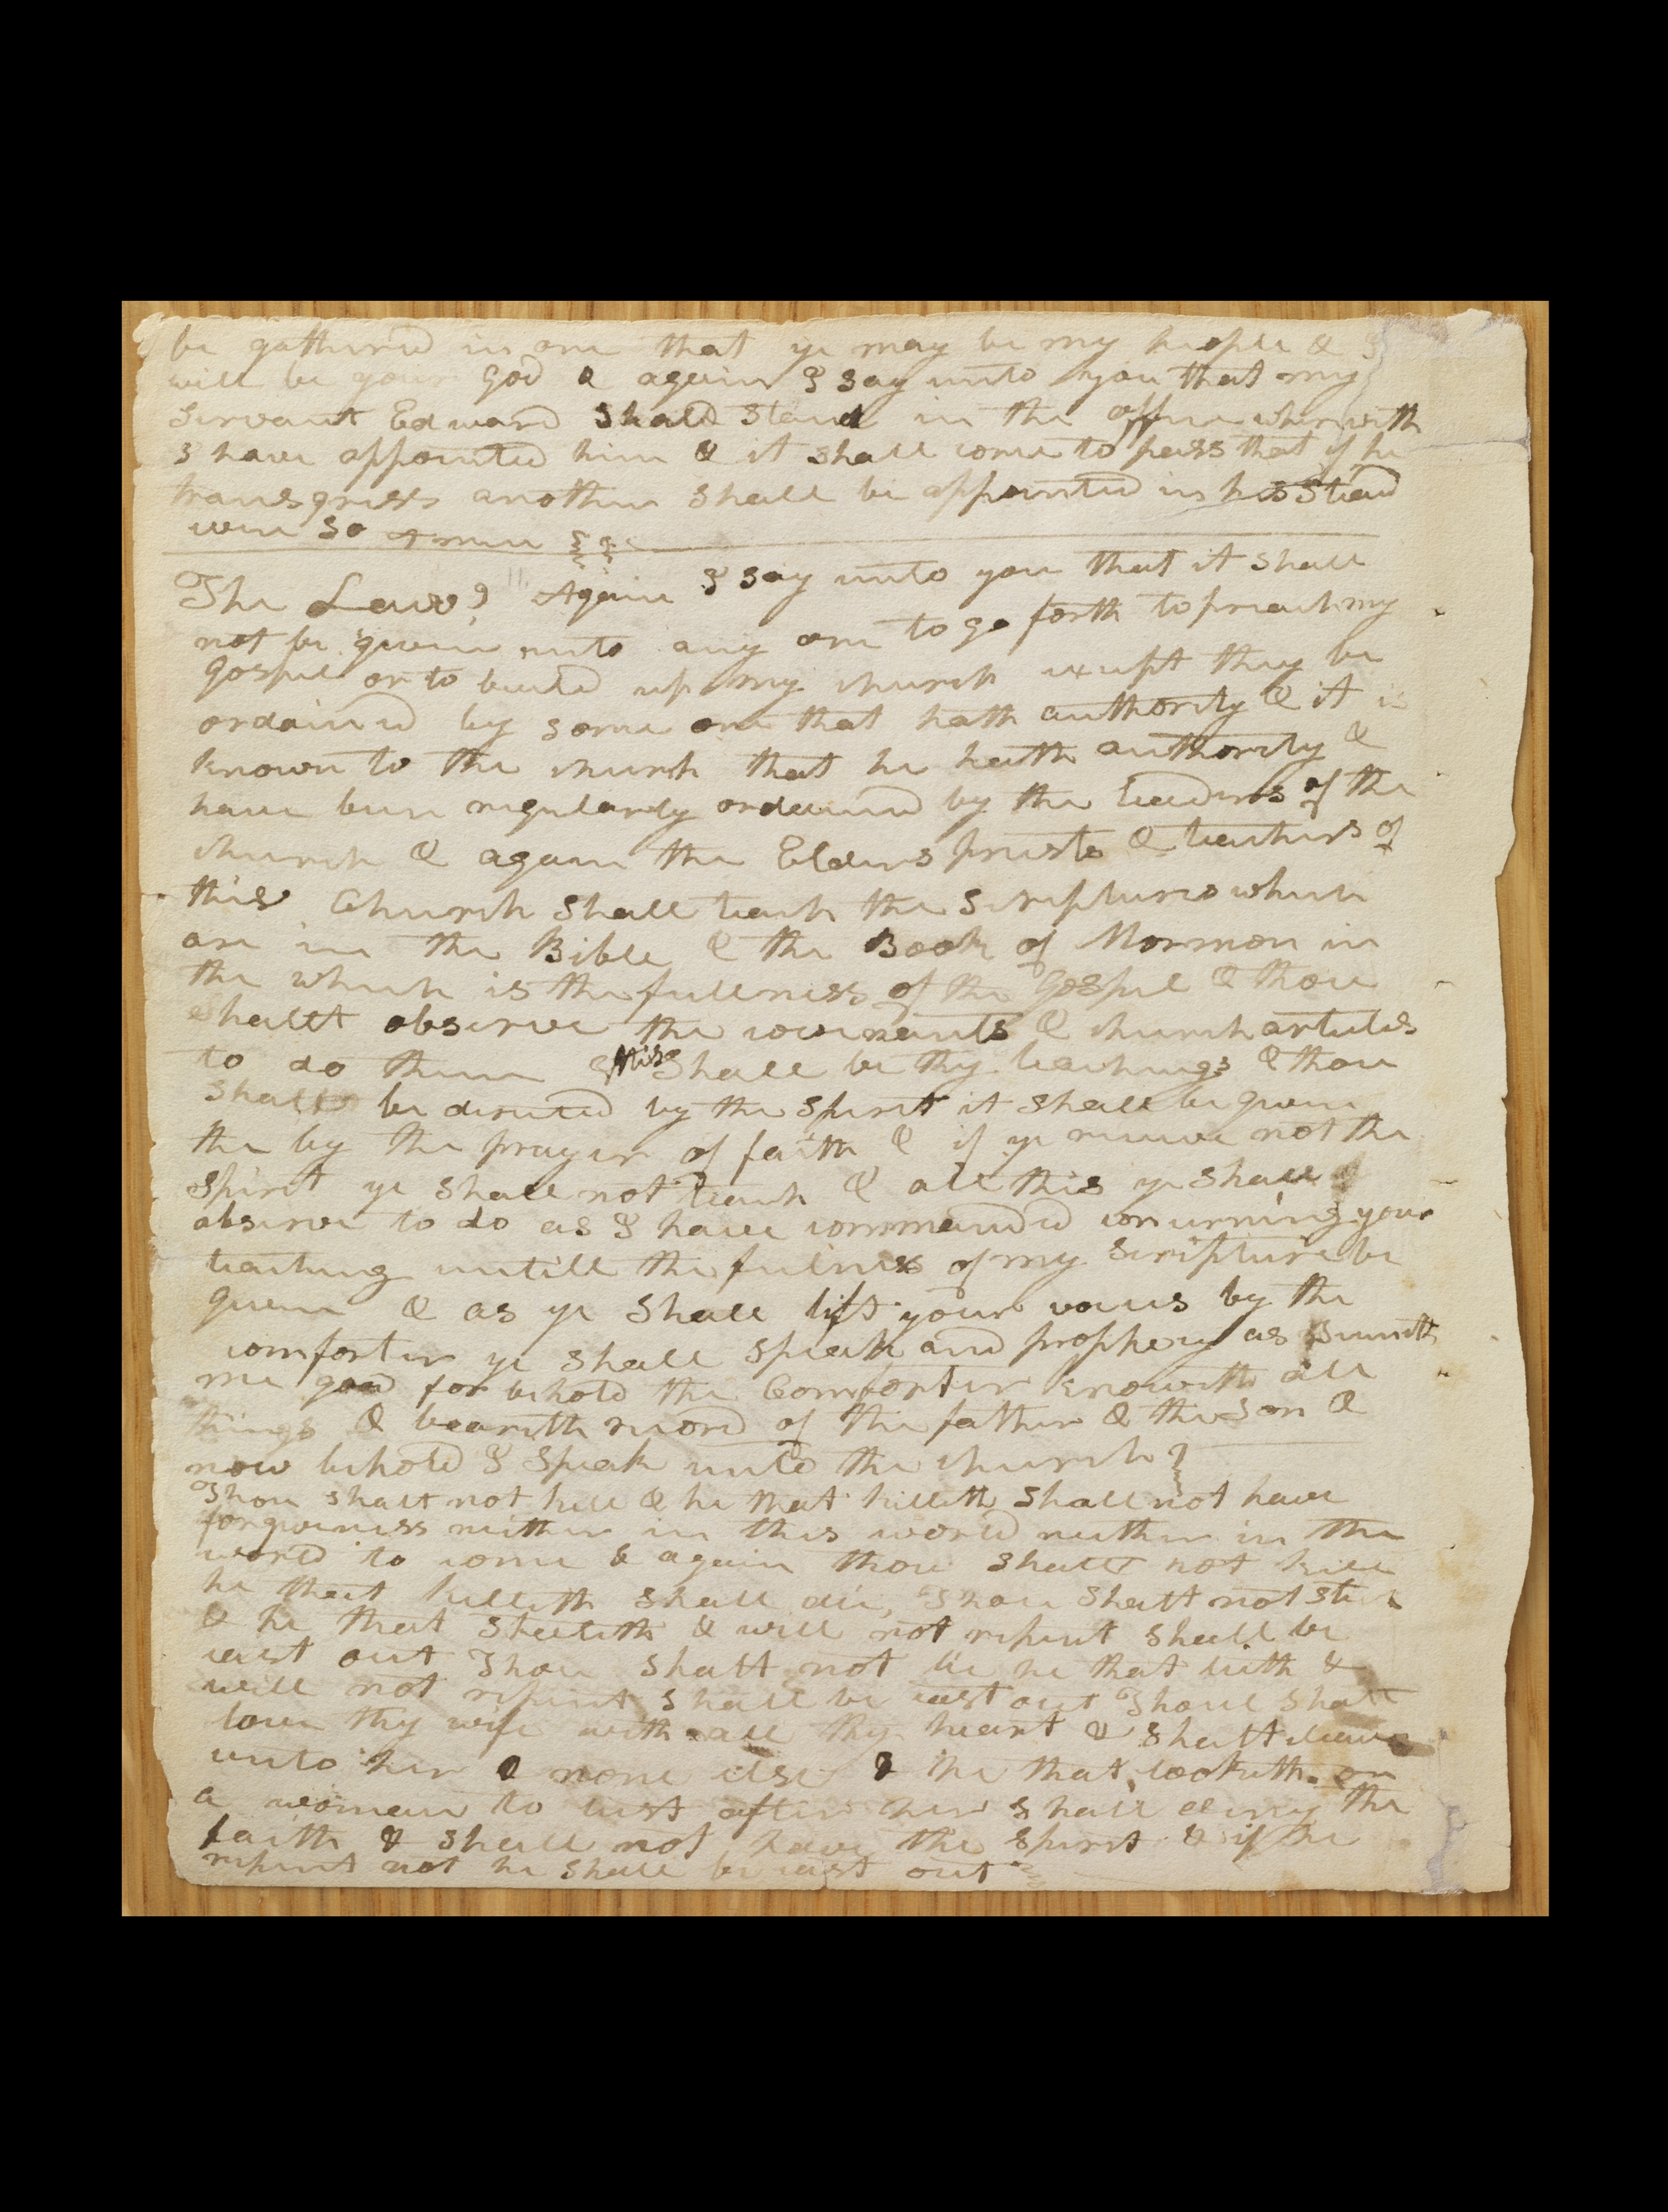 be gathered in one that ye may be my people & I
will be your God & again I say unto you that my
servant Edward Shald Stand in the office wherwith
I have appointed him & it shall come to pass that if he
transgress another shall be appointed in his Stead
even so Amen
The Law Again I say unto you that it shall
not be given unto any one to go forth to preach my
gospel or to build up my church except they be
ordained by some one that hath authority & it is
known to the church that he hath authority &
have been regularly ordained by the leaders of the
church & again the Elders priests & teachers of
this Church shall teach the scriptures which
are in the Bible & the Book of Mormon in
the which is the fullness of the Gospel & thou
shallt observe the covenants & church articles
to do them this shall be thy teachings & thou
shalt be directed by the spirit it shall be given
the by the prayer of faith & if ye receive not the
spirit ye shall not teach & all this ye shall
observe to do as I have commanded concerning your
teaching untill the fulness of my scripture be
given & as ye shall lift your voices by the
comforter ye shall speak and prophecy as Seemeth
me good for behold the Comforter knoweth all
things & beareth record of the father & the son &
now behold I speak unto the church
Thou shalt not kill & he that killeth shall not have
forgiveness neither in this world neither in the
world to come & again thou shalt not kill
he that killeth shall die, Thou shalt not steal
& he that stealeth & will not repent shall be
cast out Thou shalt not lie he that lieth &
will not repent shall be cast out Thou shalt
love thy wife with all thy heart & shalt cleave
unto her & none else & he that looketh on
a woman to lust after her shall deny the
faith & shall not have the spirit & if he
repent not he shall be cast out